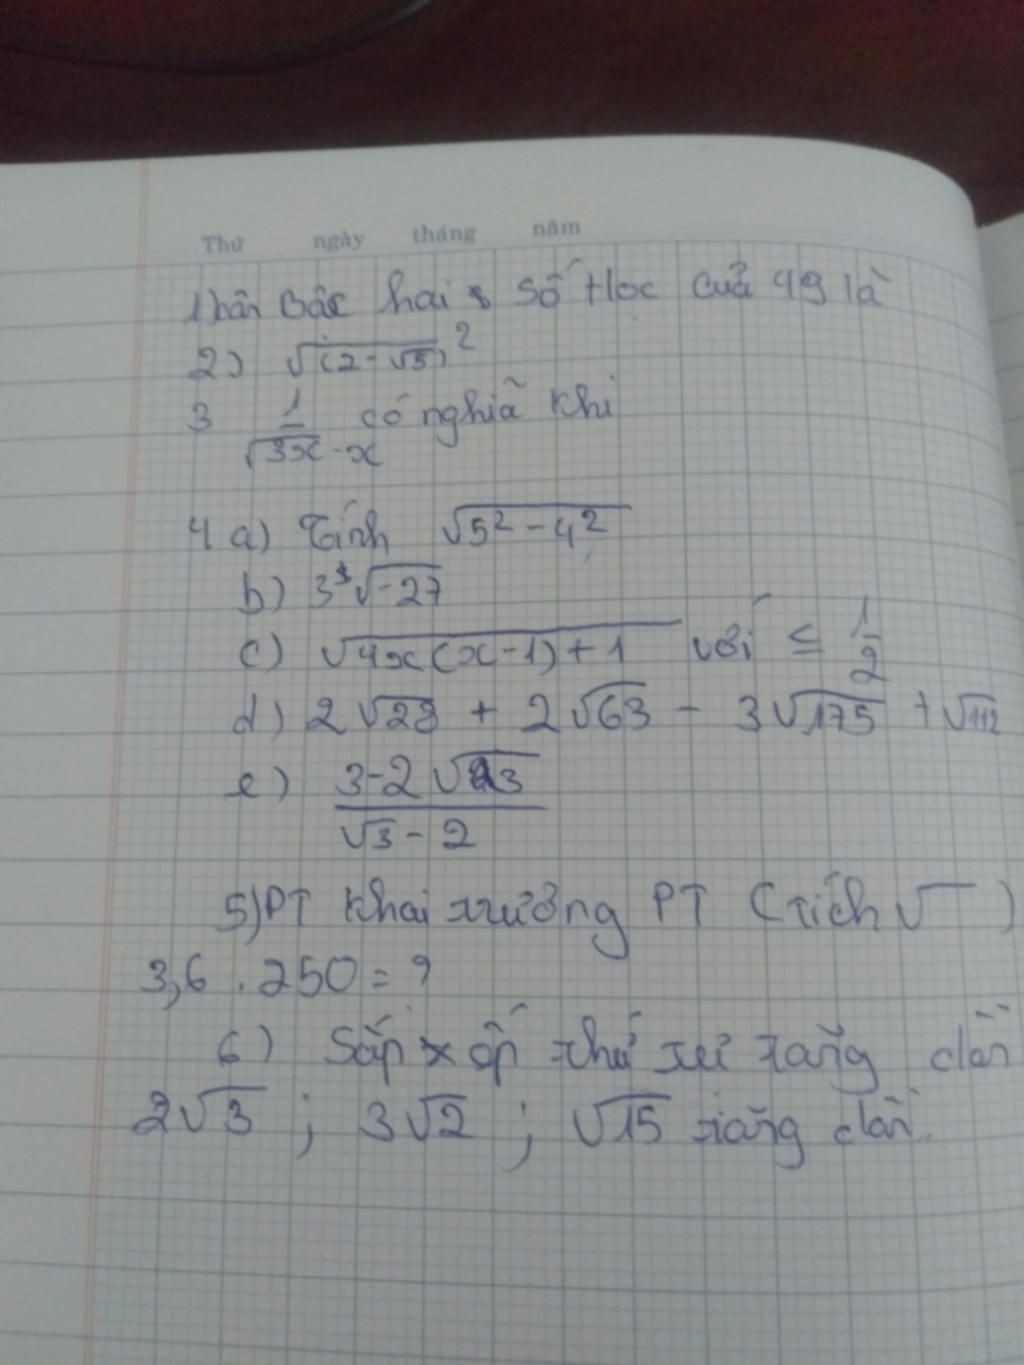 Thứ ngày tháng năm
1) căn Bậc hai Số Học của 49 là
2) √(2-√5)²
3 1/(√3x - x) có nghĩa khi
4 a) Tính √(5² - 4²)
b) 3³√-27
c) √(4x(x-1)+1) với ≤ 1/2
d) 2√28 + 2√63 - 3√175 + √112
e) (3-2√3)/(√3 - 2)
5) PT Khai trương PT (tích √ )
3,6 . 250 = ?
6) Sắp xếp thứ tự tăng dần
2√3 ; 3√2 ; √15 tăng dần.